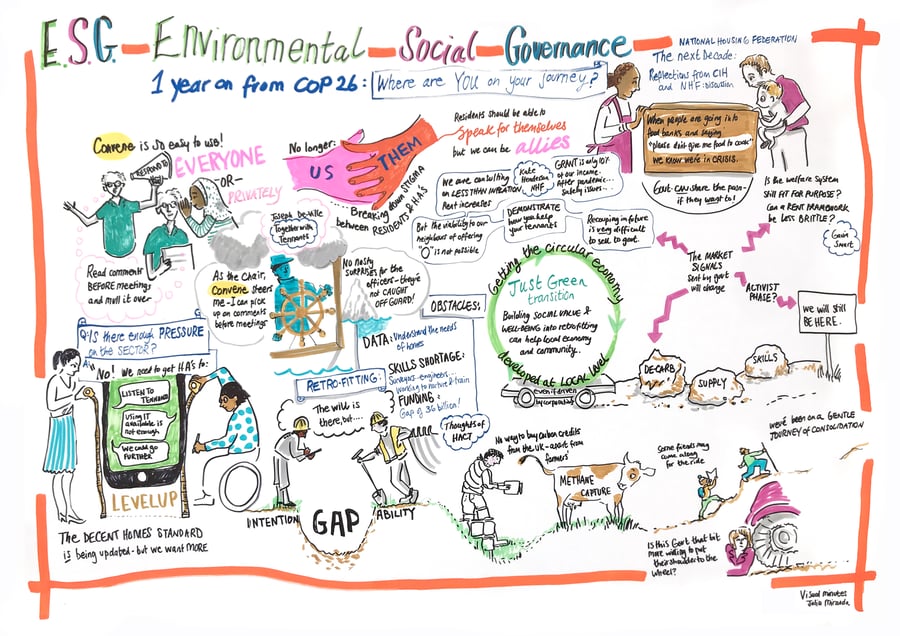 E.S.G. – Environmental – Social – Governance
1 year on from COP26: Where are YOU on your journey?
NATIONAL HOUSING FEDERATION
The next Decade:
Reflections from CIH
and NHF: discussion
Convene is so easy to use!
RESPOND TO
EVERYONE
-OR-
PRIVATELY
Read comments
BEFORE meetings
and mull it over
No longer:
US
THEM
Breaking down STIGMA
between RESIDENTS & HA'S
Residents should be able to
Speak for themselves
but we can be allies
We are consulting
on LESS THAN INFLATION
Rent increases
Kate
Henderson
NHF
GRANT is only 10%
of our income.
After pandemic...
safety issues...
But the viability to our
neighbours of offering
"0" is not possible
DEMONSTRATE
how you help
your tennants
Recouping in future
is very difficult
to sell to govt.
When people are going into
food banks and saying
"please don't give me food to cook"
we know we're in CRISIS.
Govt CAN share the pain -
if they want to!
Is the welfare system
still FIT FOR PURPOSE?
Can a RENT FRAMEWORK
be LESS BRITTLE?
Gavin
Smart
The MARKET
SIGNALS
sent by govt
will change
ACTIVIST
PHASE?
We will still
BE HERE.
Together with
Tennants
As the Chair,
Convene steers
me - I can pick
up on comments
before meetings
No nasty
SURPRISES for the
officers - they're
not CAUGHT
OFF GUARD!
OBSTACLES:
DATA: Understand the needs
of homes
SKILLS SHORTAGE:
Surveyors - engineers...
FUNDING:
Gap of 36 billion!
Thoughts of
HACT
Getting the circular economy
Just Green
transition
Building SOCIAL VALUE &
WELL-BEING into retrofitting
can help local economy
and community..
developed at LOCAL level
DECARB
SUPPLY
SKILLS
Q: Is there enough PRESSURE
on the SECTOR?
A: "No! We need to get HA's to:
LISTEN TO
TENNANTS
Using IT
available is
not enough
We could go
FURTHER
LEVEL UP
The DECENT HOMES STANDARD
is being updated - but we want MORE
RETRO-FITTING:
The will is
there, but....
INTENTION
GAP
ABILITY
No way to buy carbon credits
from the UK - apart from
farmers'
METHANE
CAPTURE
Some friends may
come along
for the ride
we've been on a GENTLE
JOURNEY OF CONSOLIDATION
Is this Govt that bit
more willing to put
their shoulder to the
wheel?
Visual minutes